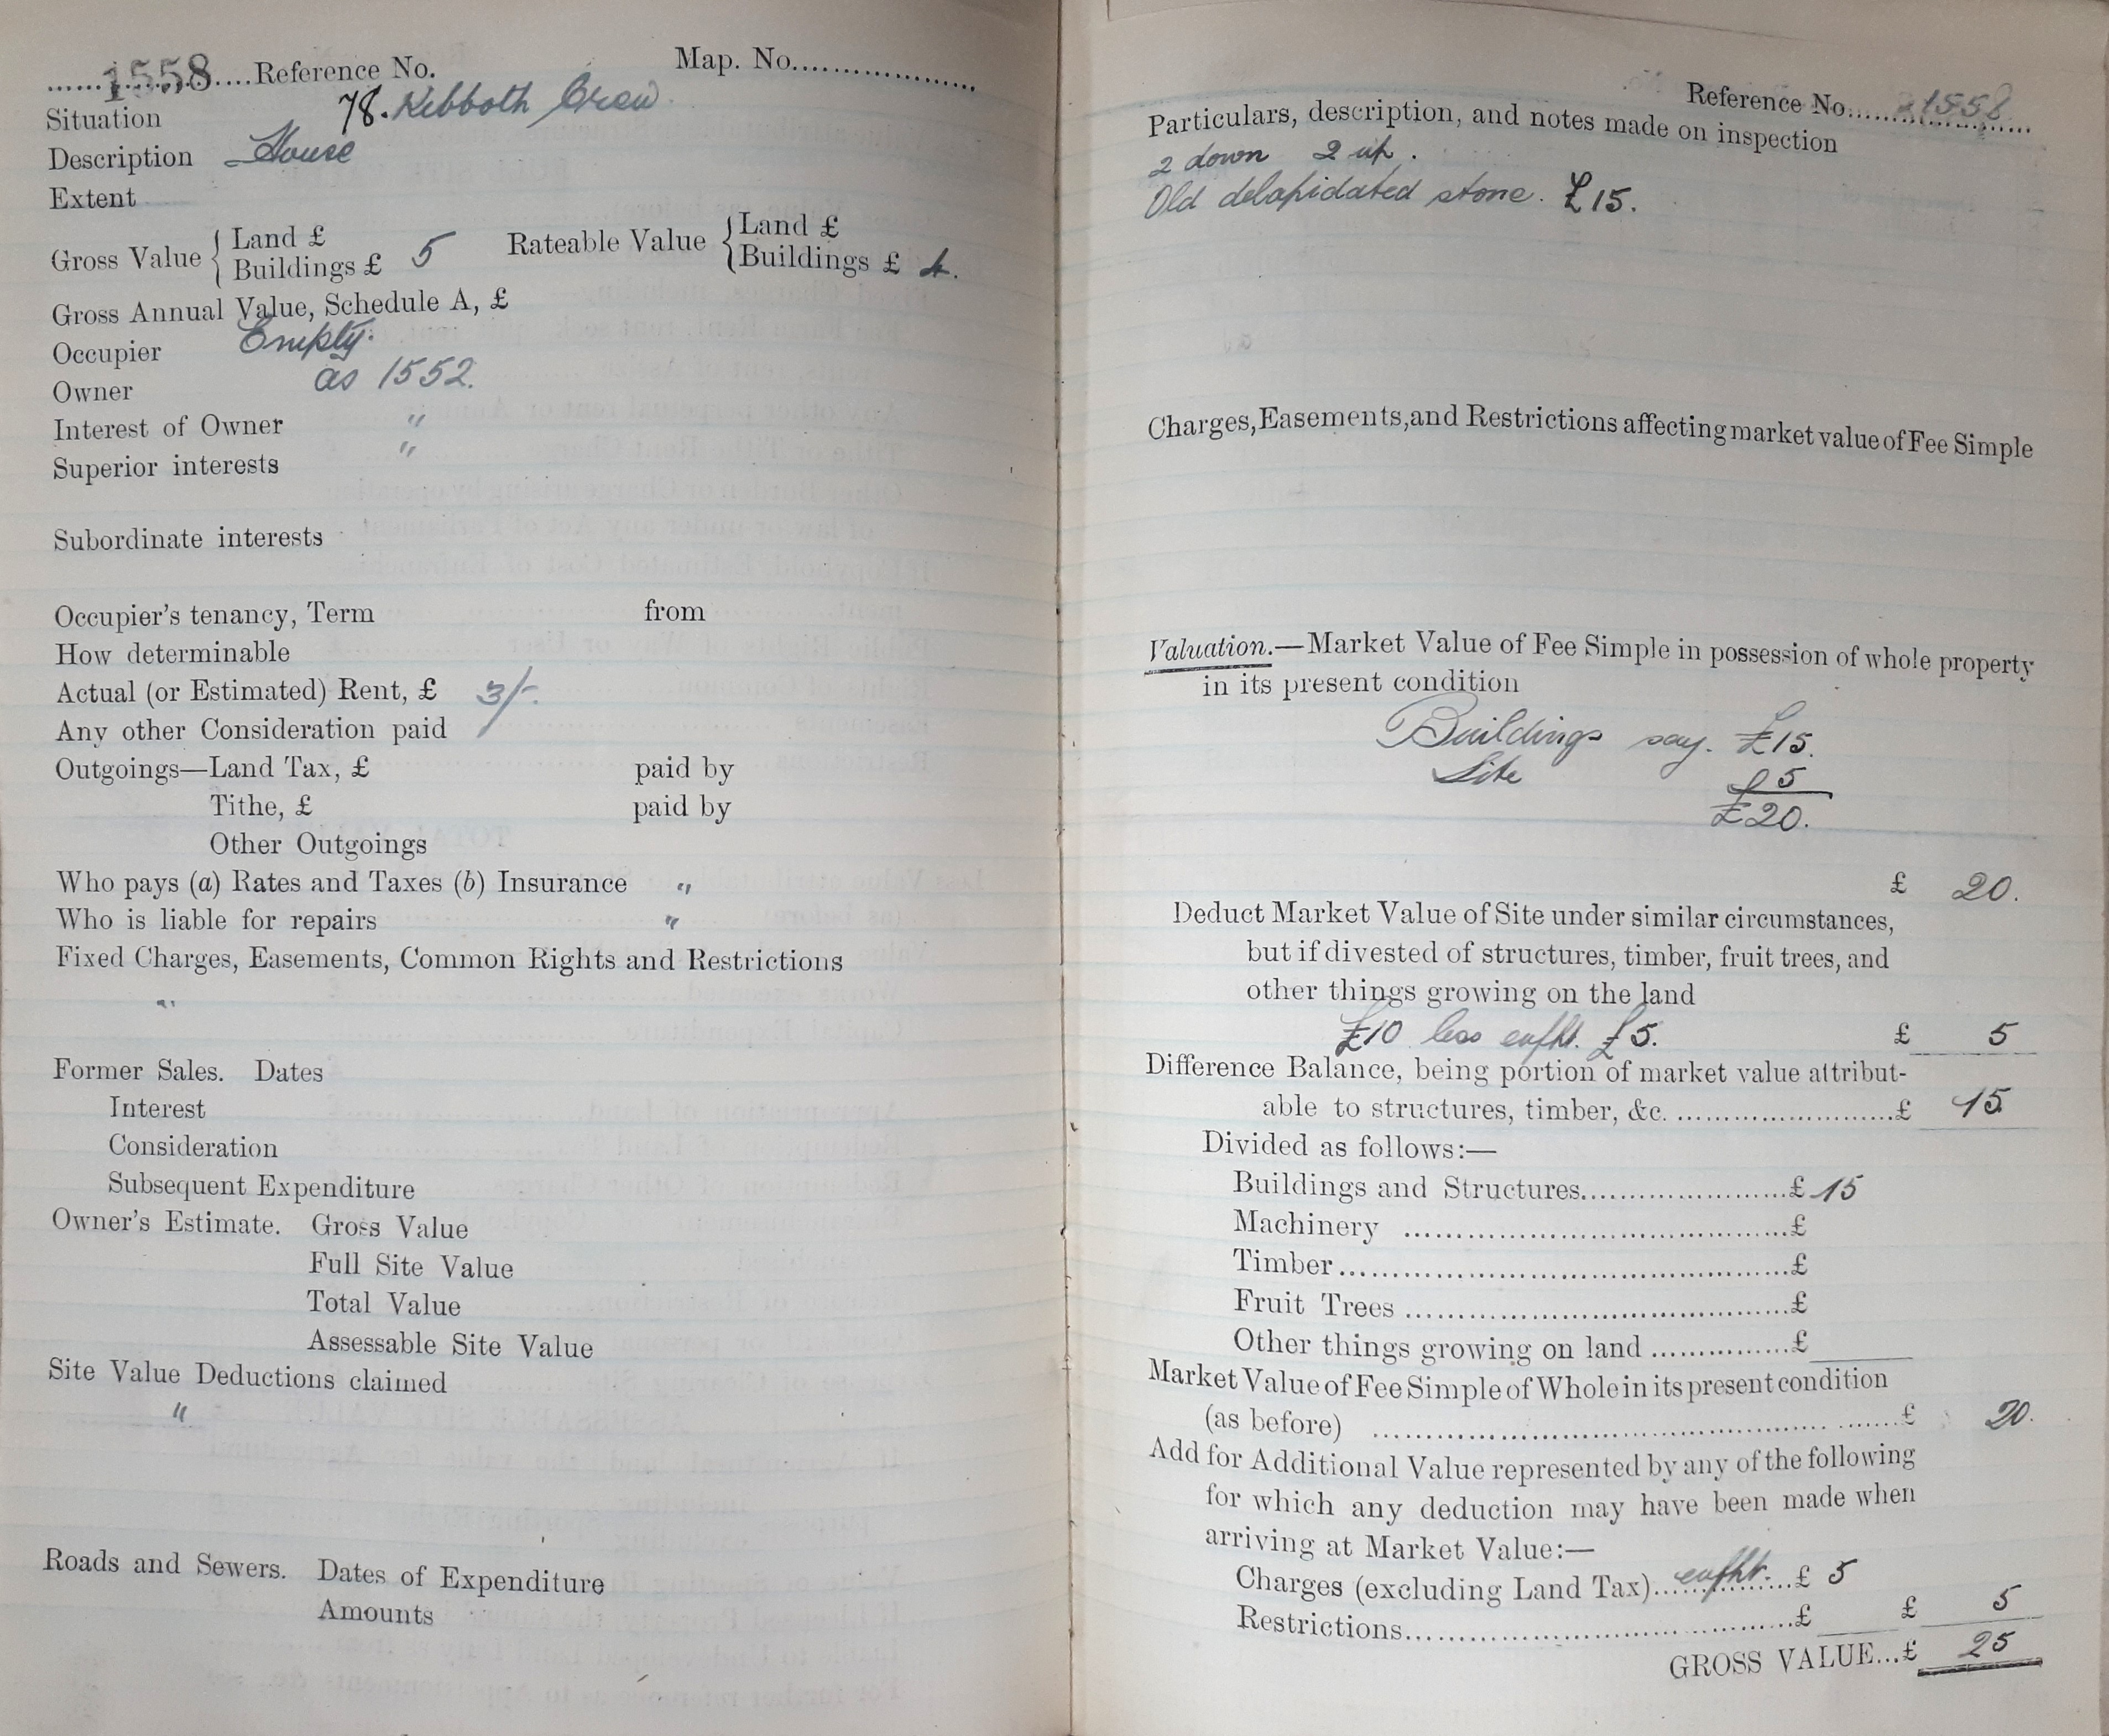 1558 Reference No. Map. No.
Situation 78. Kebboth Crew
Description House
Extent
Gross Value { Land £
Buildings £ 5
Rateable Value { Land £
Buildings £ 4.
Gross Annual Value, Schedule A, £
Occupier Empty.
Owner as 1552.
Interest of Owner "
Superior interests "
Subordinate interests
Occupier's tenancy, Term from
How determinable
Actual (or Estimated) Rent, £ 3/-.
Any other Consideration paid
Outgoings—Land Tax, £ paid by
Tithe, £ paid by
Other Outgoings
Who pays (a) Rates and Taxes (b) Insurance "
Who is liable for repairs "
Fixed Charges, Easements, Common Rights and Restrictions
"
Former Sales. Dates
Interest
Consideration
Subsequent Expenditure
Owner's Estimate. Gross Value
Full Site Value
Total Value
Assessable Site Value
Site Value Deductions claimed
"
Roads and Sewers. Dates of Expenditure
Amounts
Reference No. 1558
Particulars, description, and notes made on inspection
2 down 2 up.
Old delapidated stone. £15.
Charges, Easements, and Restrictions affecting market value of Fee Simple
Valuation.—Market Value of Fee Simple in possession of whole property
in its present condition
Buildings say. £15.
Site £5
£20.
£ 20.
Deduct Market Value of Site under similar circumstances,
but if divested of structures, timber, fruit trees, and
other things growing on the land
£10 less enfht. £5. £ 5
Difference Balance, being portion of market value attribut-
able to structures, timber, &c. £ 15
Divided as follows:—
Buildings and Structures £ 15
Machinery £
Timber £
Fruit Trees £
Other things growing on land £
Market Value of Fee Simple of Whole in its present condition
(as before) £ 20.
Add for Additional Value represented by any of the following
for which any deduction may have been made when
arriving at Market Value:—
Charges (excluding Land Tax) enfht. £ 5
Restrictions £ £ 5
GROSS VALUE...£ 25